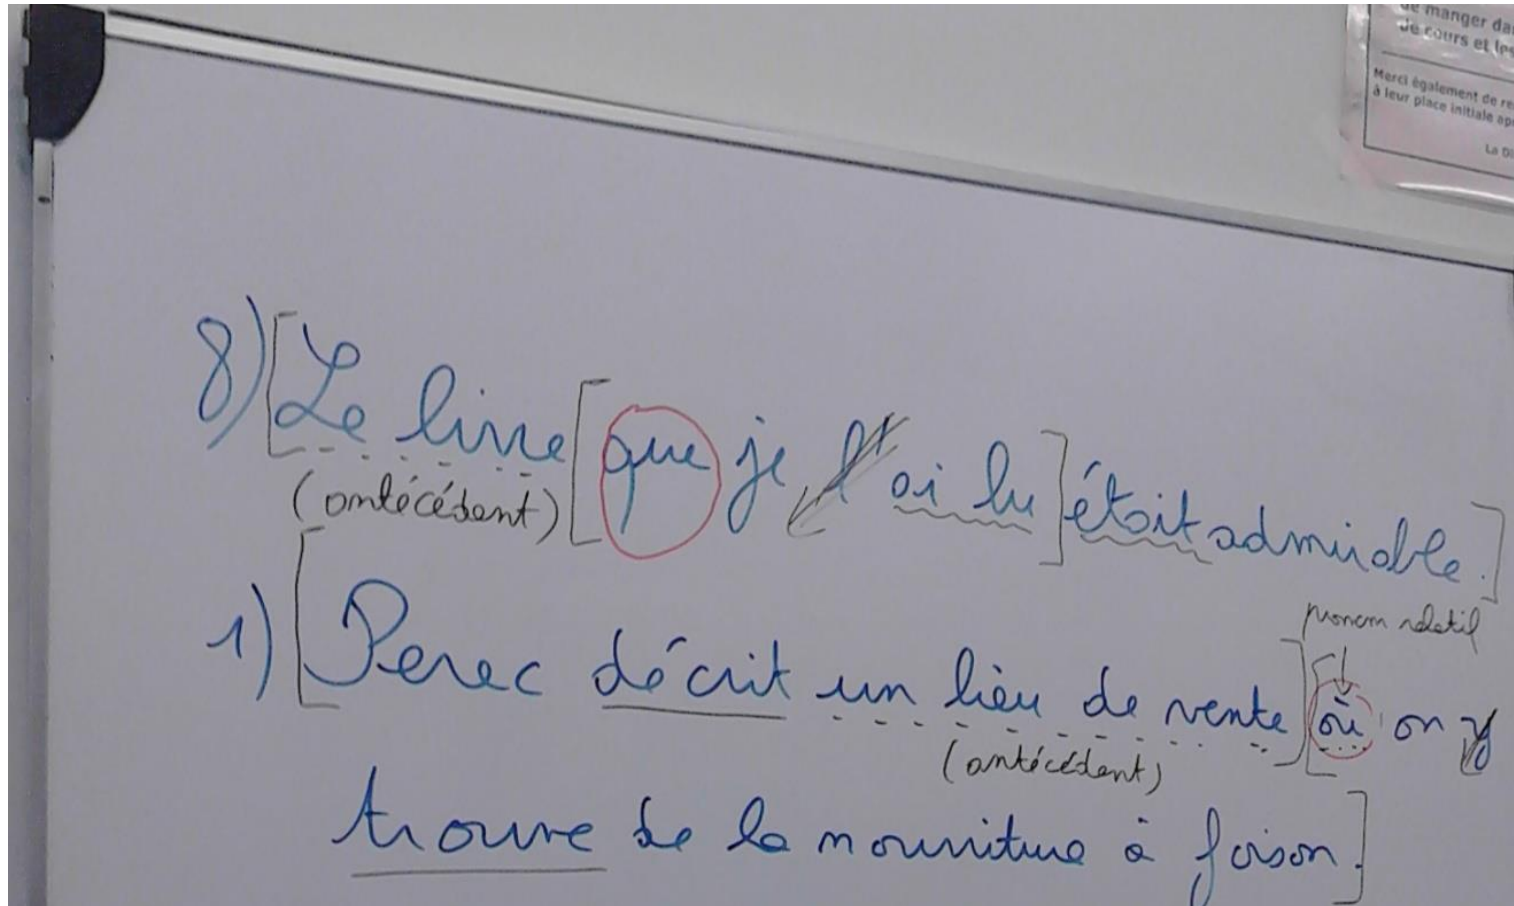 de manger da
de cours et les
Merci également de re
à leur place initiale ap
La Di
8) [Le livre [que je l'ai lu] était admirable.]
(antécédent)
pronom relatif
1) [Perec décrit un lieu de vente] [où on y
(antécédent)
trouve de la nourriture à foison.]